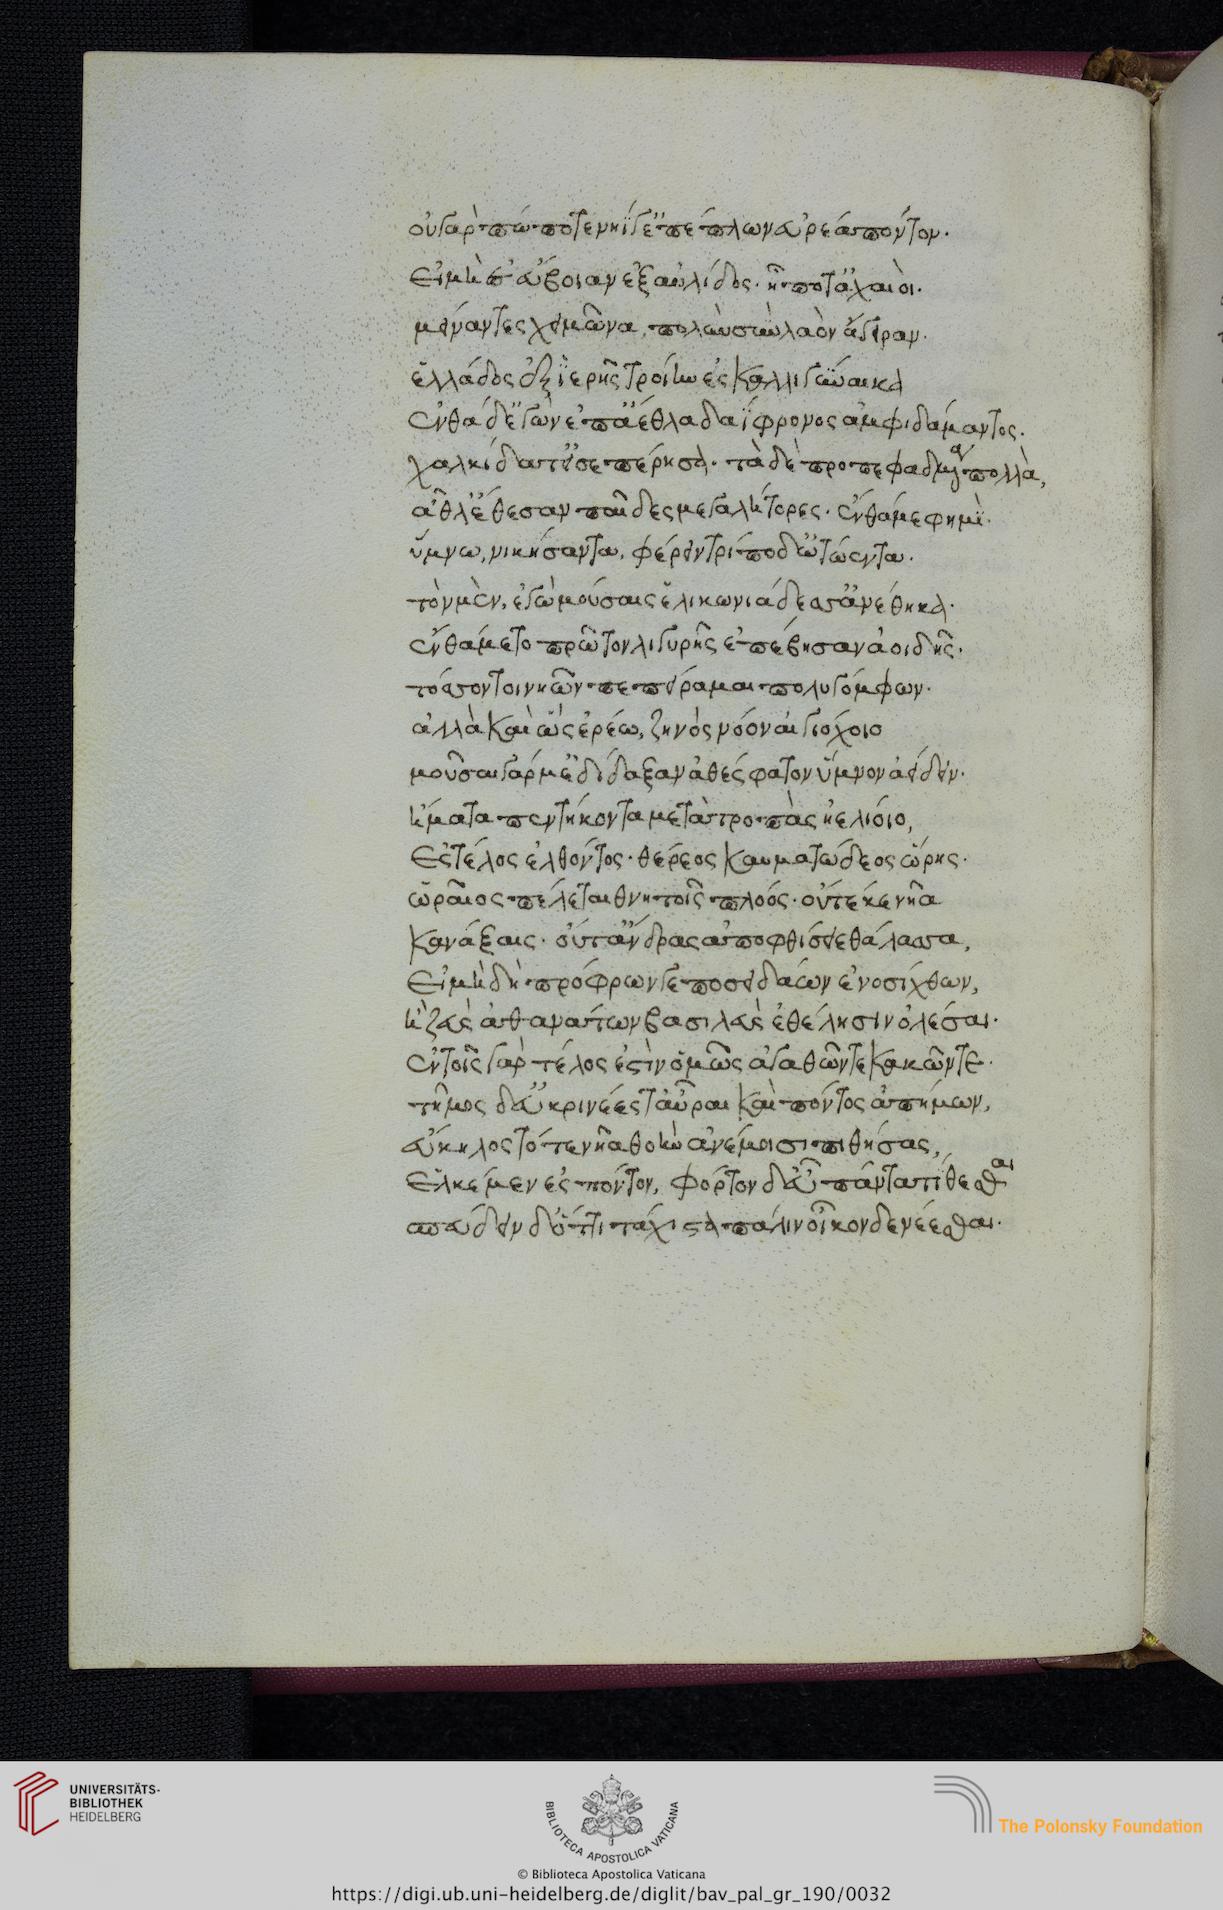 οὐ γάρ πώ ποτε νηῒ γ' ἐπέπλων εὐρέα πόντον.
Εἰ μὴ ἐς εὔβοιαν ἐξ αὐλίδος. ᾗ ποτ' ἀχαιοὶ.
μείναντες χειμῶνα, πολὺν σὺν λαὸν ἄγειραν.
ἑλλάδος ἐξ ἱερῆς τροίην ἐς καλλιγύναικα
ἐνθάδ' ἐγὼν ἐπ' ἄεθλα δαΐφρονος ἀμφιδάμαντος.
χαλκίδα τ' εἰσεπέρησα. τὰ δὲ προπεφραδμένα πολλὰ,
ἆθλ' ἔθεσαν παῖδες μεγαλήτορες. ἔνθά με φημὶ.
ὕμνω, νικήσαντα, φέρειν τρίποδ' ὠτώεντα.
τὸν μὲν, ἐγὼ μούσαις ἑλικωνιάδεσσ' ἀνέθηκα.
ἔνθά με το πρῶτον λιγυρῆς ἐπέβησαν ἀοιδῆς.
τόσσον τοι νηῶν πεπείραμαι πολυγόμφων.
ἀλλὰ καὶ ὣς ἐρέω, ζηνὸς νόον αἰγιόχοιο
μοῦσαι γάρ μ' ἐδίδαξαν ἀθέσφατον ὕμνον ἀείδειν.
ἤματα πεντήκοντα μετὰ τροπὰς ἠελίοιο,
Ἐς τέλος ἐλθόντος. θέρεος καυματώδεος ὥρης.
ὡραῖος πέλεται θνητοῖς πλοός. οὔτέ κε νῆα
καυάξαις. οὔτ' ἄνδρας ἀποφθίσειε θάλασσα,
Εἰ μὴ δὴ πρόφρων γε ποσειδάων ἐνοσίχθων,
ἢ ζεὺς ἀθανάτων βασιλεὺς ἐθέλησιν ὀλέσαι.
ἐν τοῖς γὰρ τέλος ἐστὶν ὁμῶς ἀγαθῶν τε κακῶν τε.
τῆμος δ' εὐκρινέες τ' αὖραι καὶ πόντος ἀπήμων,
εὔκηλος τότε νῆα θοὴν ἀνέμοισι πιθήσας,
Ἑλκέμεν ἐς πόντον, φόρτον δ' εὖ πάντα τίθεσθαι
σπεύδειν δ' ὅττι τάχιστα πάλιν οἶκον δὲ νέεσθαι.
UNIVERSITÄTS-
BIBLIOTHEK
HEIDELBERG
BIBLIOTECA APOSTOLICA VATICANA
The Polonsky Foundation
© Biblioteca Apostolica Vaticana
https://digi.ub.uni-heidelberg.de/diglit/bav_pal_gr_190/0032